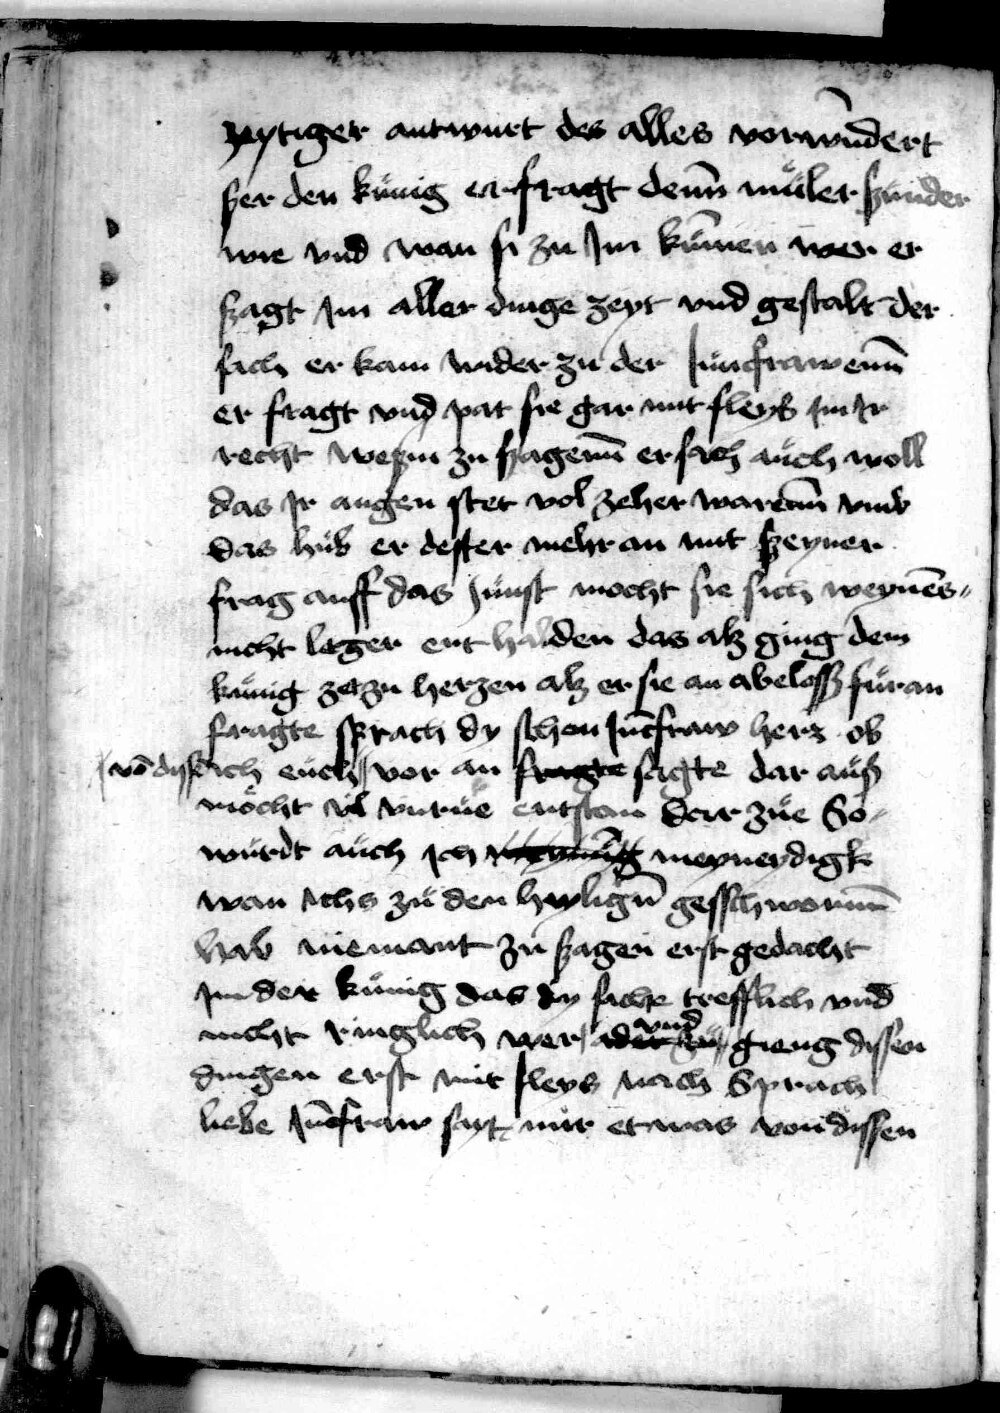 zeytiger antwurt des alles vorwundert
ßer den kunig er fragt denn muler ßunder
wie vnd wan si zu Im kumen wer er
ßagt Im aller dinge zeyt vnd gestalt der
sach er kam wider zu der Junckfrawenn
er fragt vnd pat sie gar mit fleyß Im Ir
recht weßin zu ßagenn er sach auch woll
das Ir augen stet vol zeher warenn vnd
das hub er dester mehr an mit ßeyner
frag auff das Junst mocht sie sich weynens
nicht leger ent halden das alß ging dem
kunig ze zu herzen alß er sie an abeloss furan
fragte sprach dy schon Junckfraw herr ob
ich euch vor an fragte sagte dar auß
von disser
mocht vil vnrue entstan dar zue So
wurdt auch Ich meyneydigk
wan Ichs zu den heyligen gesschworenn
hab niemant zu ßagen erst gedacht
Im der kunig das dy sache trefflich vnd
nicht ringlich wer vnd gieng dissen
dingen erst mit fleys nach Sprach
liebe Junckfraw sayt mir etwas von dissen